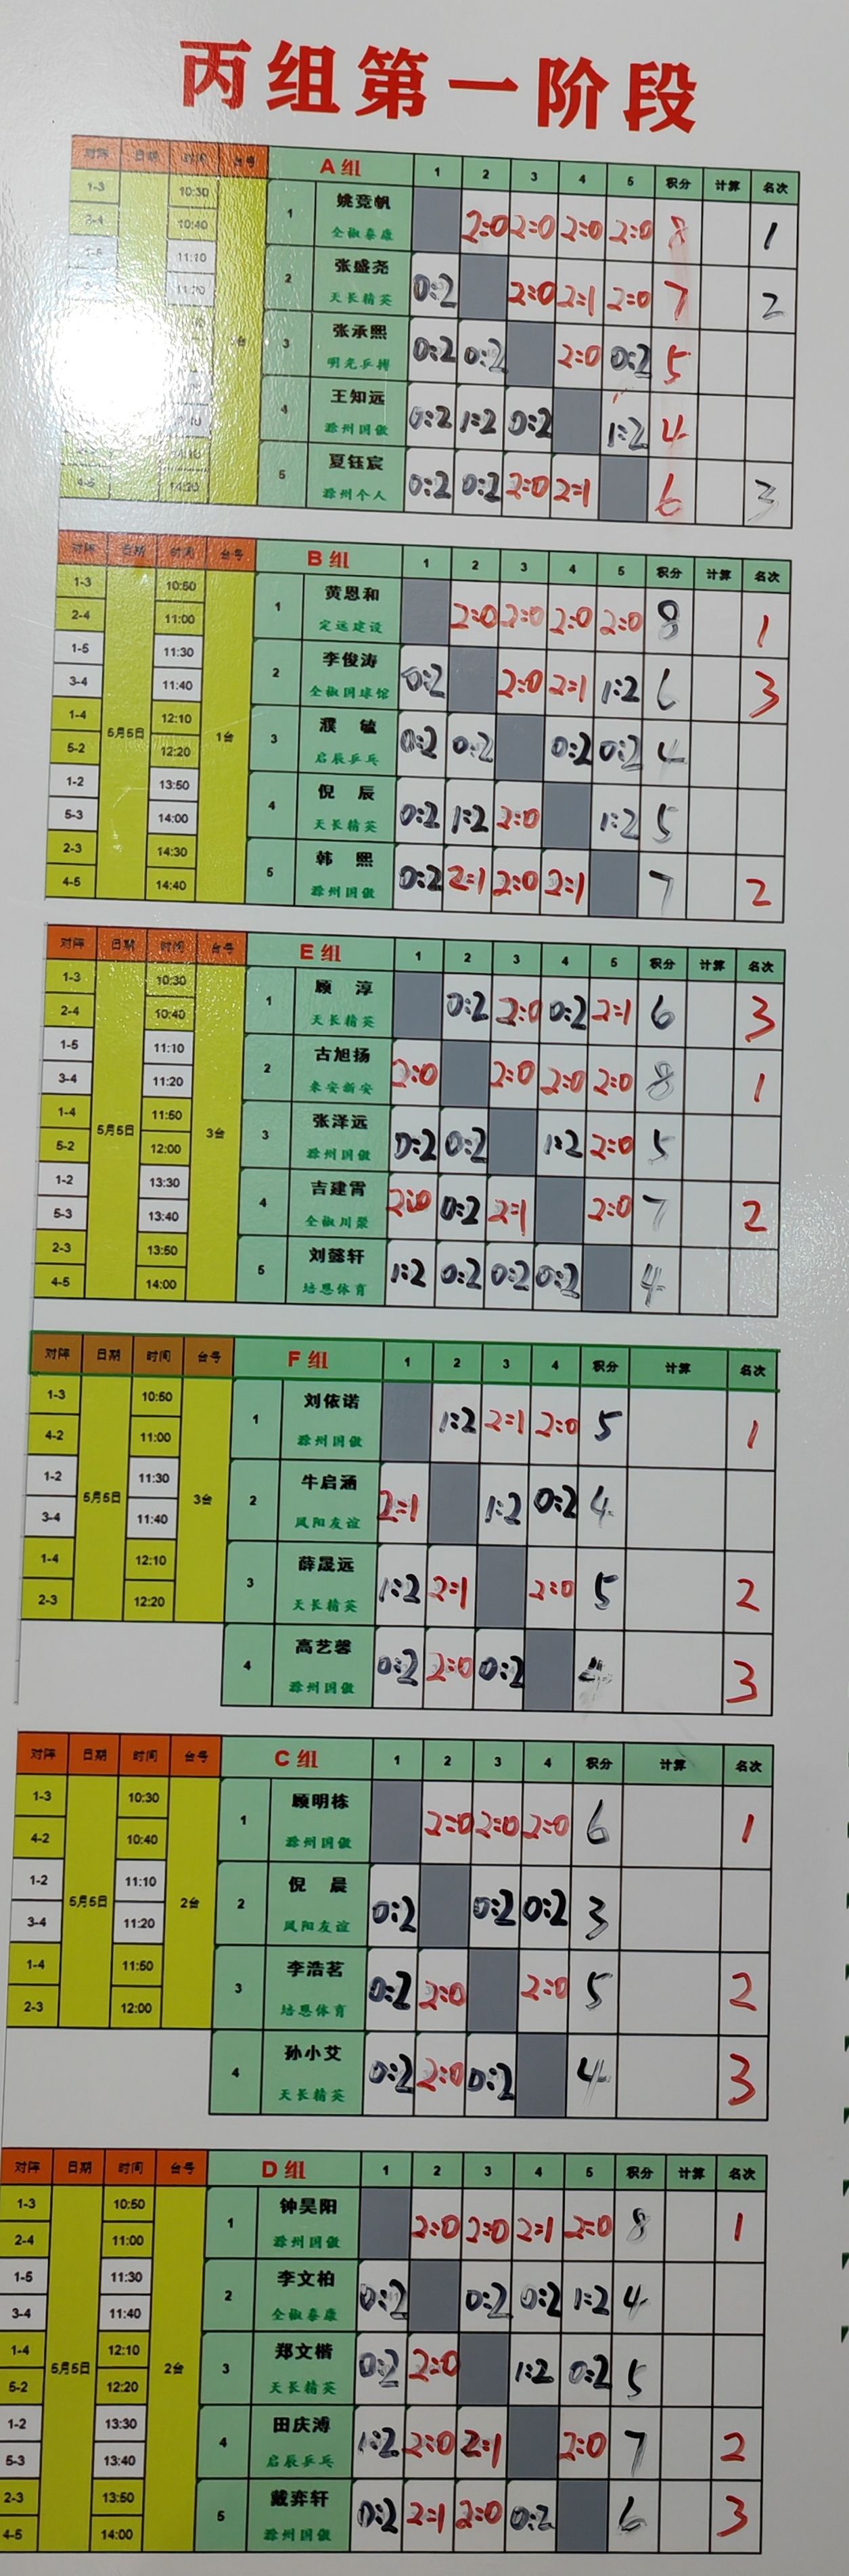 丙组第一阶段
对阵 日期 时间 台号 A组 1 2 3 4 5 积分 计算 名次
1-3 10:30
2-4 10:40
11:10
11:20
1 姚竞帆 2:0 2:0 2:0 2:0 8 1
全椒泰康
2 张盛尧 0:2 2:0 2:1 2:0 7 2
天长精英
3 张承熙 0:2 0:2 2:0 0:2 5
明光乒搏
4 王知远 0:2 1:2 0:2 1:2 4
滁州国傲
5 夏钰宸 0:2 0:2 2:0 2:1 6 3
滁州个人
4-5 14:20
对阵 日期 时间 台号 B组 1 2 3 4 5 积分 计算 名次
1-3 10:50
2-4 11:00
1-5 11:30
3-4 11:40
1-4 12:10
5-2 12:20
1-2 13:50
5-3 14:00
2-3 14:30
4-5 14:40
5月5日 1台
1 黄恩和 2:0 2:0 2:0 2:0 8 1
定远建设
2 李俊涛 0:2 2:0 2:1 1:2 6 3
全椒网球馆
3 濮敏 0:2 0:2 0:2 0:2 4
启辰乒乓
4 倪辰 0:2 1:2 2:0 1:2 5
天长精英
5 韩熙 0:2 2:1 2:0 2:1 7 2
滁州国傲
对阵 日期 时间 台号 E组 1 2 3 4 5 积分 计算 名次
1-3 10:30
2-4 10:40
1-5 11:10
3-4 11:20
1-4 11:50
5-2 12:00
1-2 13:30
5-3 13:40
2-3 13:50
4-5 14:00
5月5日 3台
1 顾淳 0:2 2:0 0:2 2:1 6 3
天长精英
2 古旭扬 2:0 2:0 2:0 2:0 8 1
来安新安
3 张泽远 0:2 0:2 1:2 2:0 5
滁州国傲
4 吉建霄 2:0 0:2 2:1 2:0 7 2
全椒川聚
5 刘懿轩 1:2 0:2 0:2 0:2 4
培恩体育
对阵 日期 时间 台号 F组 1 2 3 4 积分 计算 名次
1-3 10:50
4-2 11:00
1-2 11:30
3-4 11:40
1-4 12:10
2-3 12:20
5月5日 3台
1 刘依诺 1:2 2:1 2:0 5 1
滁州国傲
2 牛启涵 2:1 1:2 0:2 4
凤阳友谊
3 薛晟远 1:2 2:1 2:0 5 2
天长精英
4 高艺馨 0:2 2:0 0:2 4 3
滁州国傲
对阵 日期 时间 台号 C组 1 2 3 4 积分 计算 名次
1-3 10:30
4-2 10:40
1-2 11:10
3-4 11:20
1-4 11:50
2-3 12:00
5月5日 2台
1 顾明栋 2:0 2:0 2:0 6 1
滁州国傲
2 倪晨 0:2 0:2 0:2 3
凤阳友谊
3 李浩茗 0:2 2:0 2:0 5 2
培恩体育
4 孙小艾 0:2 2:0 0:2 4 3
天长精英
对阵 日期 时间 台号 D组 1 2 3 4 5 积分 计算 名次
1-3 10:50
2-4 11:00
1-5 11:30
3-4 11:40
1-4 12:10
5-2 12:20
1-2 13:30
5-3 13:40
2-3 13:50
4-5 14:00
5月5日 2台
1 钟昊阳 2:0 2:0 2:1 2:0 8 1
滁州国傲
2 李文柏 0:2 0:2 0:2 1:2 4
全椒泰康
3 郑文楷 0:2 2:0 1:2 0:2 5
天长精英
4 田庆溥 1:2 2:0 2:1 2:0 7 2
启辰乒乓
5 戴弈轩 0:2 2:1 2:0 0:2 6 3
滁州国傲